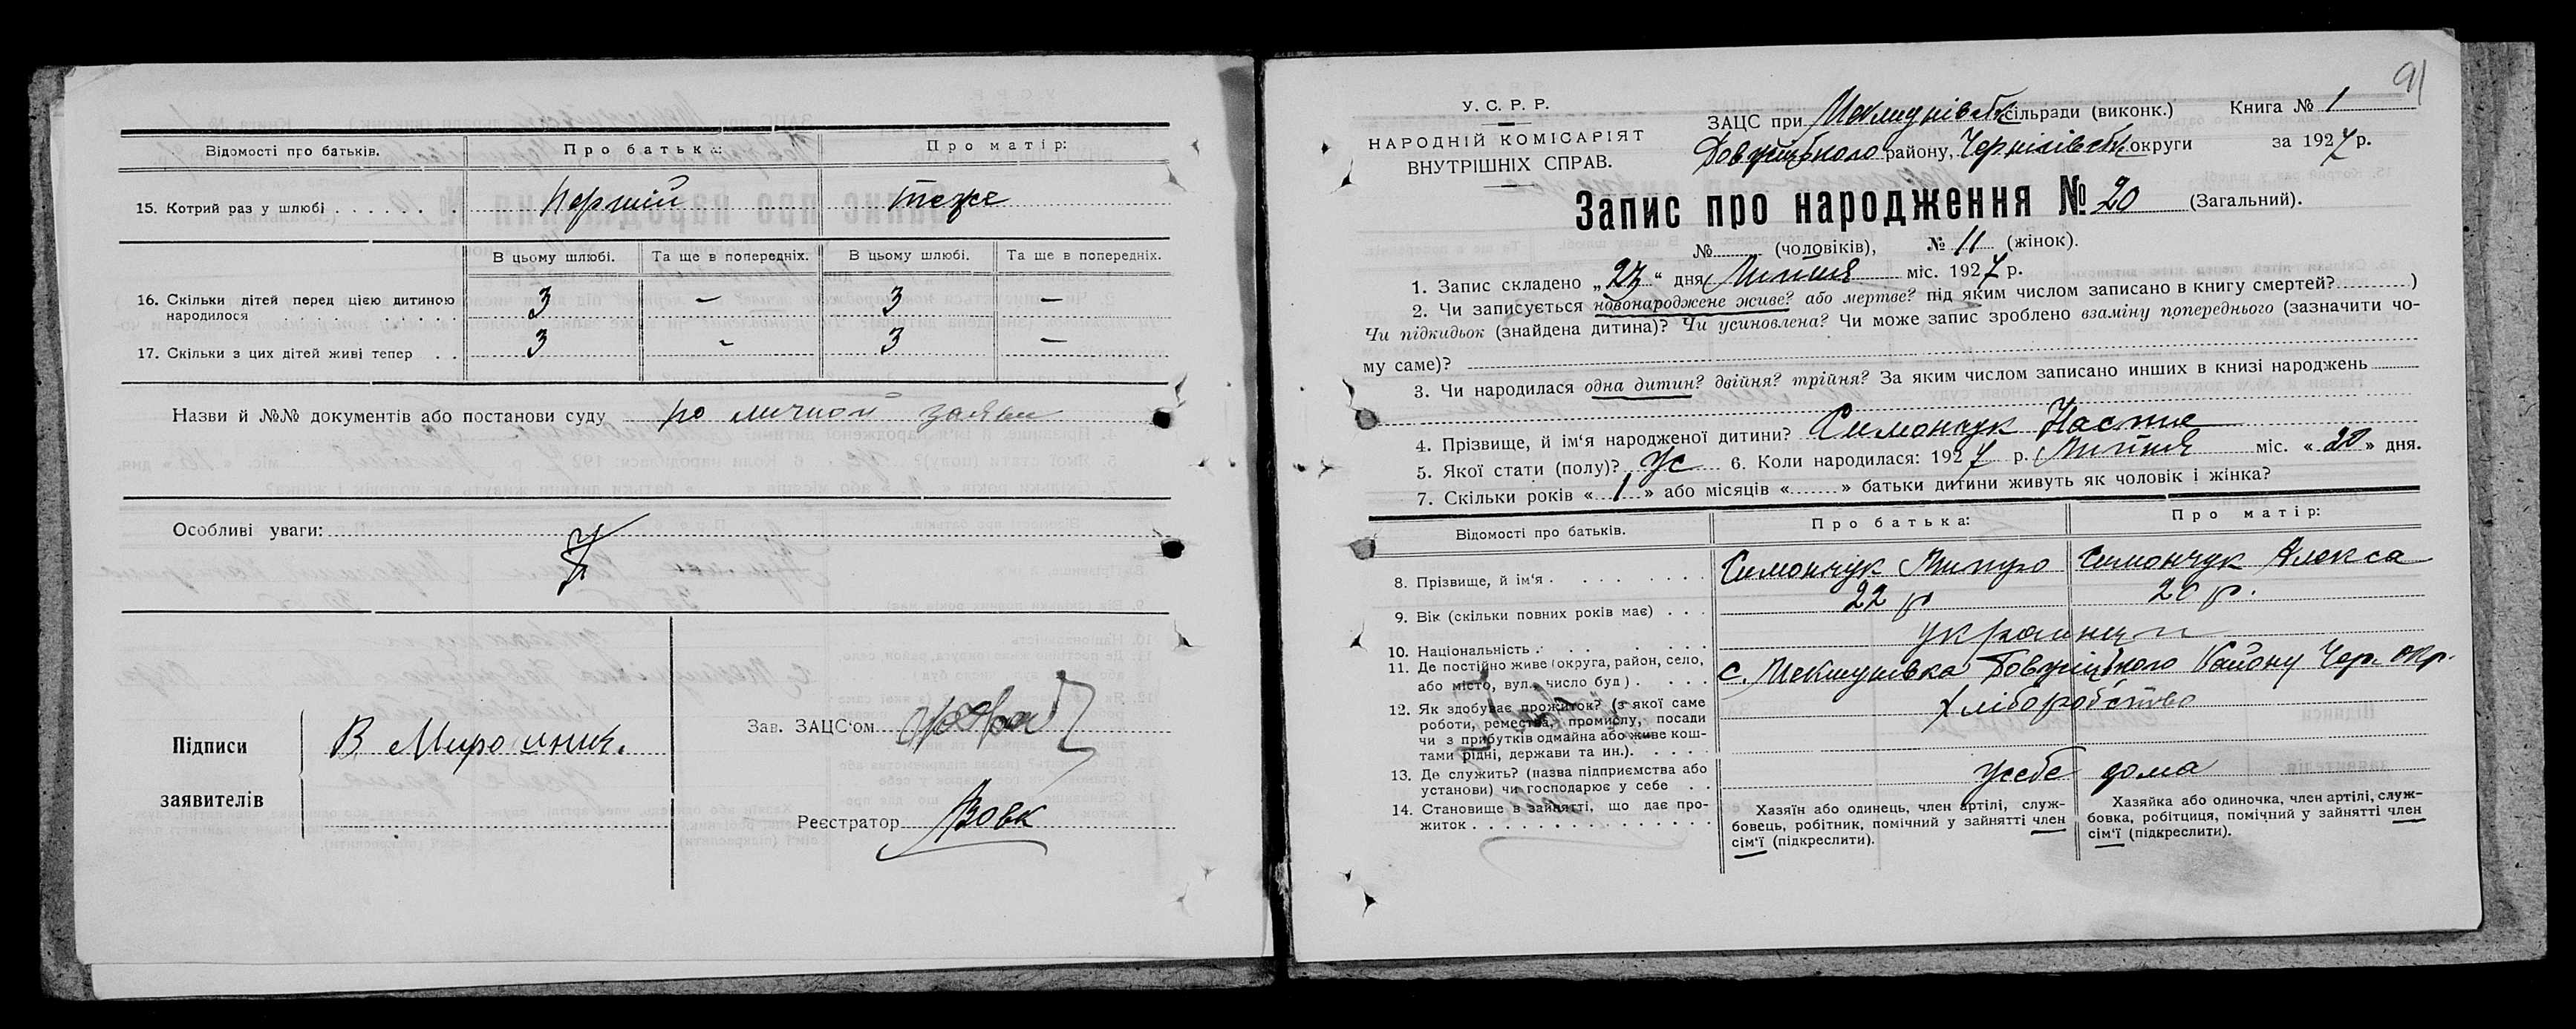 Відомості про батьків.
Про батька:
Про матір:
15. Котрий раз у шлюбі
Першій
теже
В цьому шлюбі.
Та ще в попередніх.
В цьому шлюбі.
Та ще в попередніх.
16. Скільки дітей перед цією дитиною
народилося
3 - 3 -
17. Скільки з цих дітей живі тепер
3 - 3 -
Назви й №№ документів або постанови суду по личной заяви
Особливі уваги:
Підписи
заявителів
В. Мирошник.
Зав. ЗАЦС'ом
Реєстратор Вовк
91
У. С. Р. Р.
НАРОДНІЙ КОМІСАРІЯТ
ВНУТРІШНІХ СПРАВ.
ЗАЦС при сільради (виконк.)
Книга № 1
району, Чернігівськ округи
за 1927 р.
Запис про народження № 20 (Загальний).
№ (чоловіків), № 11 (жінок).
1. Запис складено „27“ дня Липня міс. 1927 р.
2. Чи записується новонароджене живе? або мертве? під яким числом записано в книгу смертей? )
Чи підкидьок (знайдена дитина)? Чи усиновлена? Чи може запис зроблено взаміну попереднього (зазначити чо-
му саме)?
3. Чи народилася одна дитин? двійня? трійня? За яким числом записано инших в книзі народжень
4. Прізвище, й ім‘я народженої дитини? Симончук Настя
5. Якої стати (полу)? Ж 6. Коли народилася: 1927 р. Липня міс. « 20 » дня.
7. Скільки років « 1 » або місяців « » батьки дитини живуть як чоловік і жінка?
Відомості про батьків.
Про батька:
Про матір:
8. Прізвище, й ім‘я
Симончук Митро
Симончук Алекса
9. Вік (скільки повних років має)
22 р
20 р.
10. Національність
украинци
11. Де постійно живе (округа, район, село,
або місто, вул., число буд)
с. Району Чер. окр.
12. Як здобуває прожиток? (з якої саме
роботи, ремества, промислу, посади
чи з прибутків одмайна або живе кош-
тами рідні, держави та ин.).
хліборобство
13. Де служить? (назва підприємства або
установи) чи господарює у себе
усебе дома
14. Становище в зайнятті, що дає про-
житок
Хазяїн або одинець, член артілі, служ-
бовець, робітник, помічний у зайнятті член
сім‘ї (підкреслити).
Хазяйка або одиночка, член артілі, служ-
бовка, робітциця, помічний у зайнятті член
сім‘ї (підкреслити).